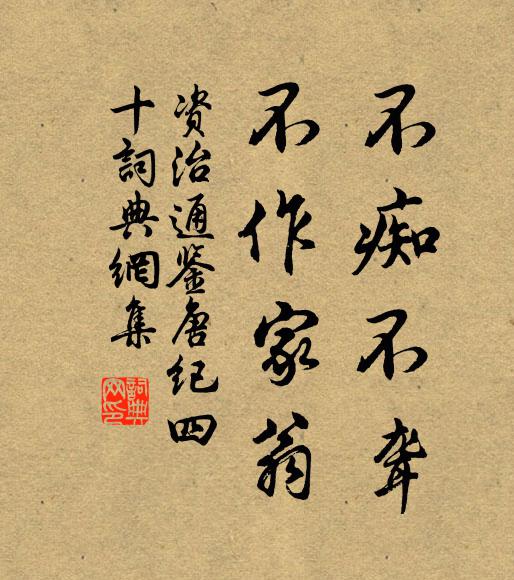 不痴不聋
不作家翁
资治通鉴唐纪四
十詞典網集
詞典網印